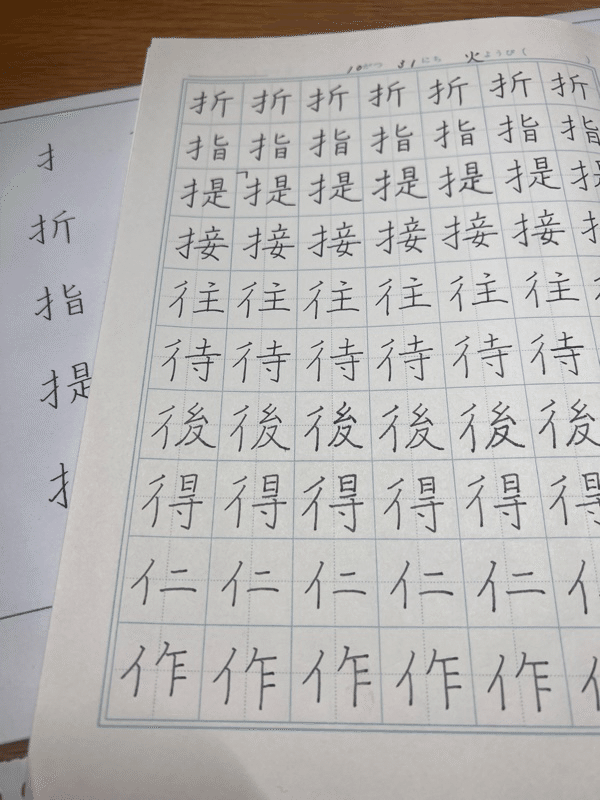 10がつ 31にち 火ようび( )
折 折 折 折 折 折 折
指 指 指 指 指 指 指
提 提 提 提 提 提 提
接 接 接 接 接 接
往 往 往 往 往 往
待 待 待 待 待 待
後 後 後 後 後 後
得 得 得 得 得 得
仁 仁 仁 仁 仁
作 作 作 作 作
扌
折
指
提